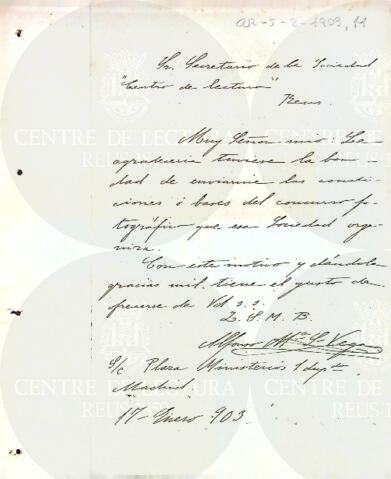 QR-5-2-1903, 11
Sr. Secretario de la Sociedad
"Centro de lectura"
Reus
Muy Señor mio: Le
agradeceria tuviese la bon
dad de enviarme las condi
ciones ó bases del concurso fo
tográfico que esa Sociedad orga
niza.
Con este motivo y dándole
gracias mil, tiene el gusto de
ofrecerse de Vd s. s.
Q. S. M. B.
Alfonso Vega
S/c Plaza Ministerios 1 dupdo
Madrid.
17- Enero 903.
CENTRE DE LECTURA
REUS
CENTRE DE LECTURA
REUS